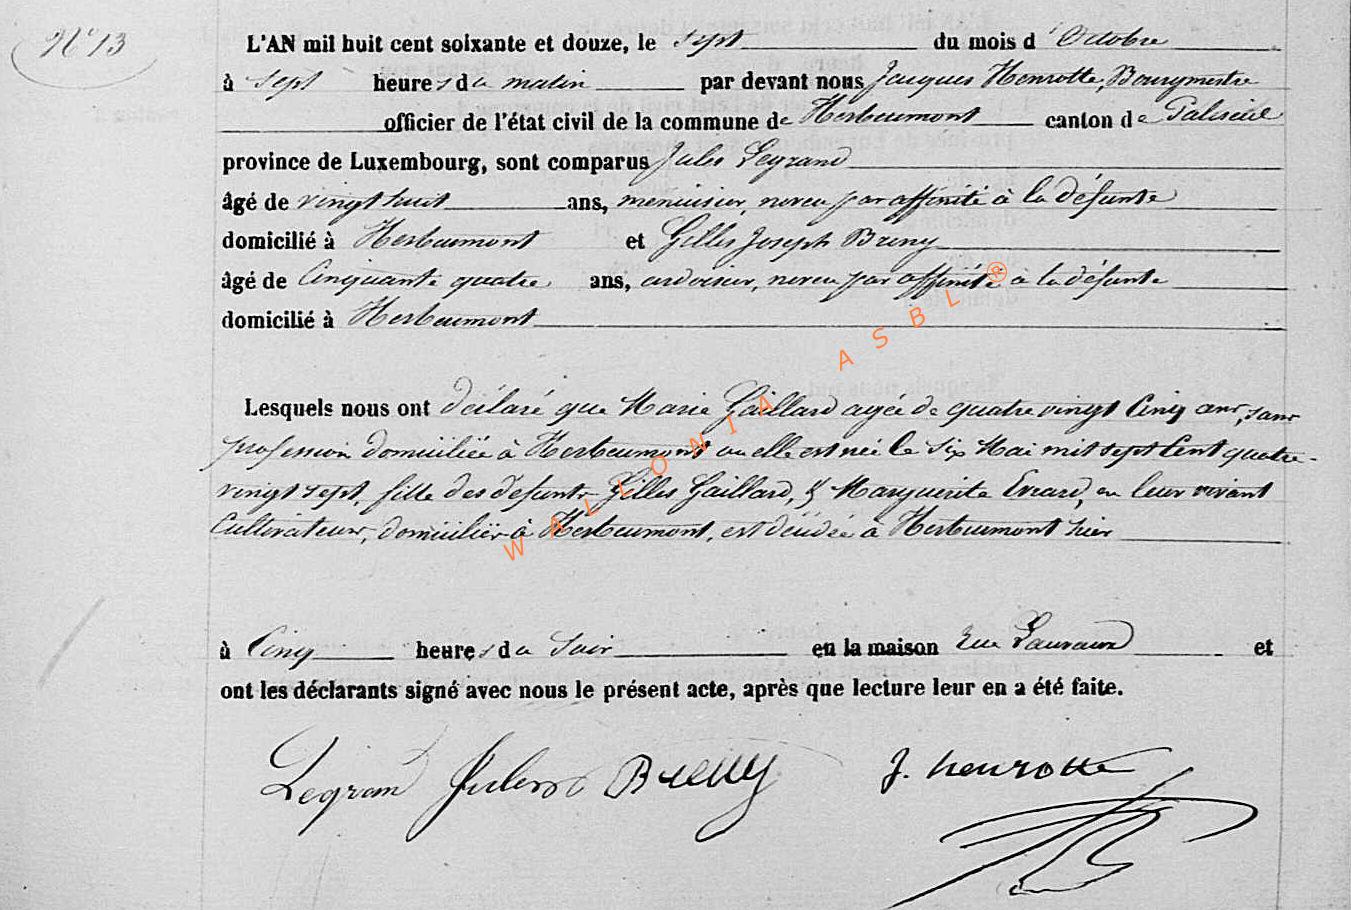 N° 13
L'AN mil huit cent soixante et douze, le sept du mois d'Octobre
à sept heures du matin par devant nous Jacques Henrotte, Bourgmestre
officier de l'état civil de la commune de Herbeumont canton de Paliseul
province de Luxembourg, sont comparus Jules Legrand
âgé de vingt huit ans, menuisier, neveu par affinité à la défunte
domicilié à Herbeumont et Gilles Joseph Breny
âgé de Cinquante quatre ans, ardoisier, neveu par affinité à la défunte
domicilié à Herbeumont
Lesquels nous ont déclaré que Marie Gaillard agée de quatre vingt Cinq ans, sans
profession domiciliée à Herbeumont ou elle est née le Six Mai mil sept Cent quatre-
vingt sept, fille des défunts Gilles Gaillard, & Marguerite Evrard, en leur vivant
Cultivateurs, domiciliés à Herbeumont, est décédée à Herbeumont hier
à Cinq heures du Soir en la maison Rue Lauvaux et
ont les déclarants signé avec nous le présent acte, après que lecture leur en a été faite.
Legrand Jules Breny J. henrotte
WALLONIA ASBL ®